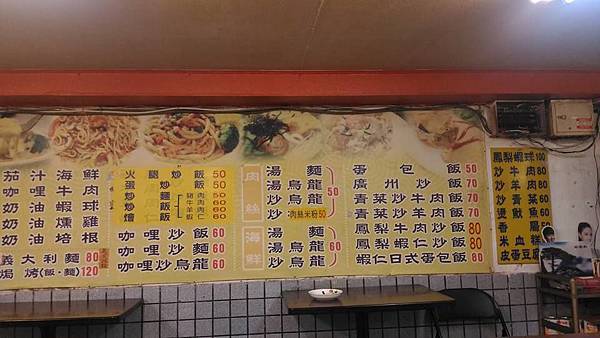 茄汁海鮮
咖哩牛肉
奶油蝦球
奶油燻雞
奶油培根
義大利麵 80
焗烤(飯·麵)120
火腿炒飯 50
蛋炒飯 50
炒麵
炒飯
燴飯
豬肉 50
牛肉 60
羊肉 60
蝦仁 60
咖哩飯 60
咖哩炒飯 60
咖哩炒烏龍 60
肉絲
湯麵
湯烏龍
炒烏龍
50
炒肉絲米粉50
海鮮
湯麵
湯烏龍
炒烏龍
60
蛋包飯 50
廣州炒飯 70
青菜炒牛肉飯 70
青菜炒羊肉飯 70
鳳梨牛肉炒飯 80
鳳梨蝦仁炒飯 80
蝦仁日式蛋包飯 80
鳳梨蝦球 100
炒牛肉 80
炒羊肉 80
燙魷魚 60
香腸
米血糕
皮蛋豆腐